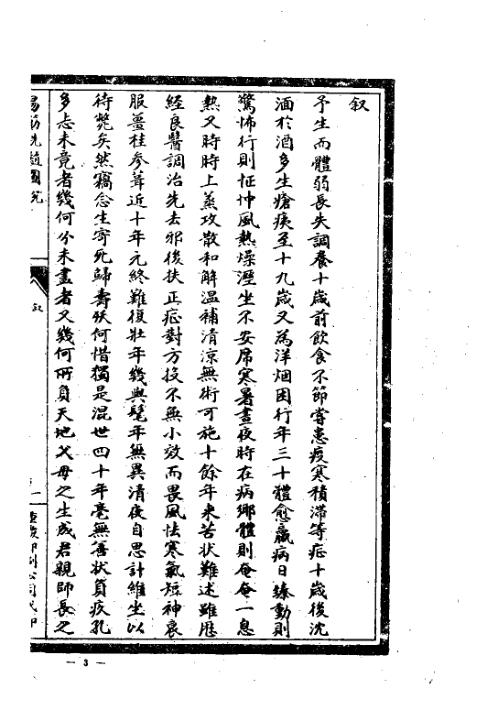 叙
予生而體弱長失調養十歲前飲食不節嘗患疫寒積滯等症十歲後沈
湎於酒多生瘡痍至十九歲又為洋烟困行年三十體愈羸病日臻動則
驚怖行則怔忡風熱燥溼坐不安席寒暑晝夜時在病鄉體則奄奄一息
熱又時時上蒸攻散和解溫補清涼無術可施十餘年來苦狀難述雖歷
經良醫調治先去邪後扶正症對方投不無小效而畏風怯寒氣短神衰
服薑桂參茸近十年元終難復壯年幾與髦年無異清夜自思計維坐以
待斃矣然竊念生寄死歸壽殀何惜獨是混世四十年毫無善狀負疚孔
多志未竟者幾何分未盡者又幾何所負天地父母之生成君親師長之
易筋洗髓圖說
叙
印刷公司代印
— 3 —